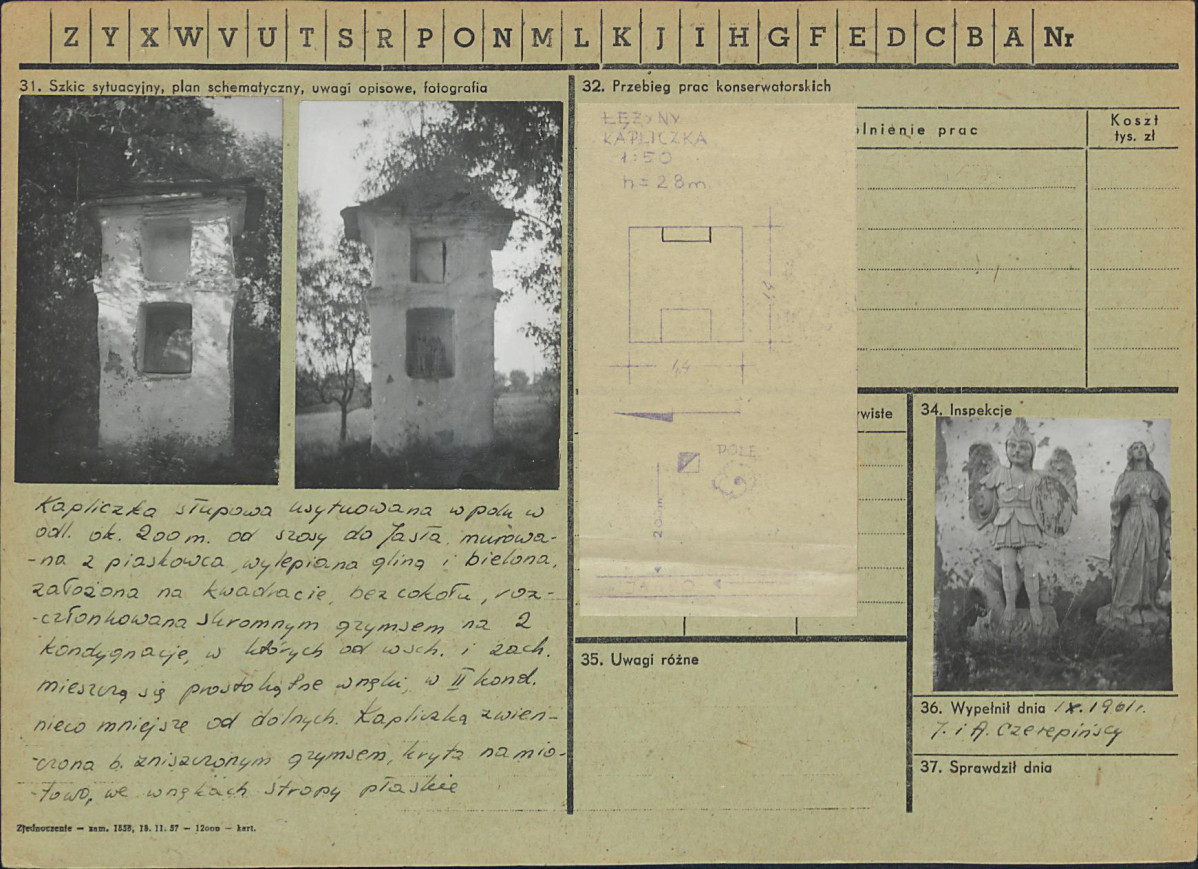 Z Y X W V U T S R P O N M L K J I H G F E D C B A Nr
31. Szkic sytuacyjny, plan schematyczny, uwagi opisowe, fotografia
Kapliczka słupowa usytuowana w polu w
odl. ok. 200 m. od szosy do Jasła, murowa-
-na z piaskowca, wylepiana gliną i bielona,
założona na kwadracie, bez cokołu, roz-
-członkowana skromnym gzymsem na 2
kondygnacje, w których od wsch. i zach.
mieszczą się prostokątne wnęki, w II kond.
nieco mniejsze od dolnych. Kapliczka zwień-
-czona b. zniszczonym gzymsem, kryta namio-
-towo, we wnękach stropy płaskie
Zjednoczenie — zam. 1858, 18. 11. 57 — 12000 — kart.
32. Przebieg prac konserwatorskich
ŁĘŻYNY
KAPLICZKA
1:50
h = 2,8 m
1,4
1,4
POLE
200 m
łnienie prac
Koszt
tys. zł
wiste
34. Inspekcje
35. Uwagi różne
36. Wypełnił dnia IX. 1961 r.
J. i A. Czerepińscy
37. Sprawdził dnia